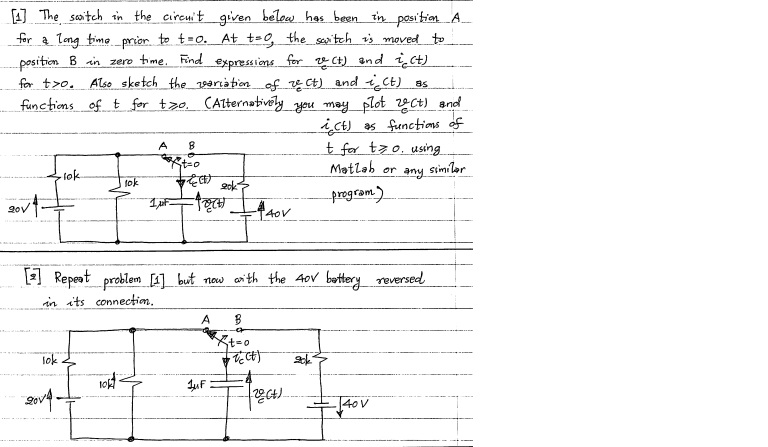 [1] The switch in the circuit given below has been in position A
for a long time prior to t=0. At t=0, the switch is moved to
position B in zero time. Find expressions for vc(t) and ic(t)
for t>0. Also sketch the variation of vc(t) and ic(t) as
functions of t for t⩾0. (Alternatively you may plot vc(t) and
ic(t) as functions of
t for t⩾0. using
Matlab or any similar
program)
A B
t=0
10k 10k ic(t) 20k
20V 1μF vc(t) 40V
[2] Repeat problem [1] but now with the 40V battery reversed
in its connection.
A B
t=0
ic(t)
10k 10k 1μF 20k
20V vc(t) 40V